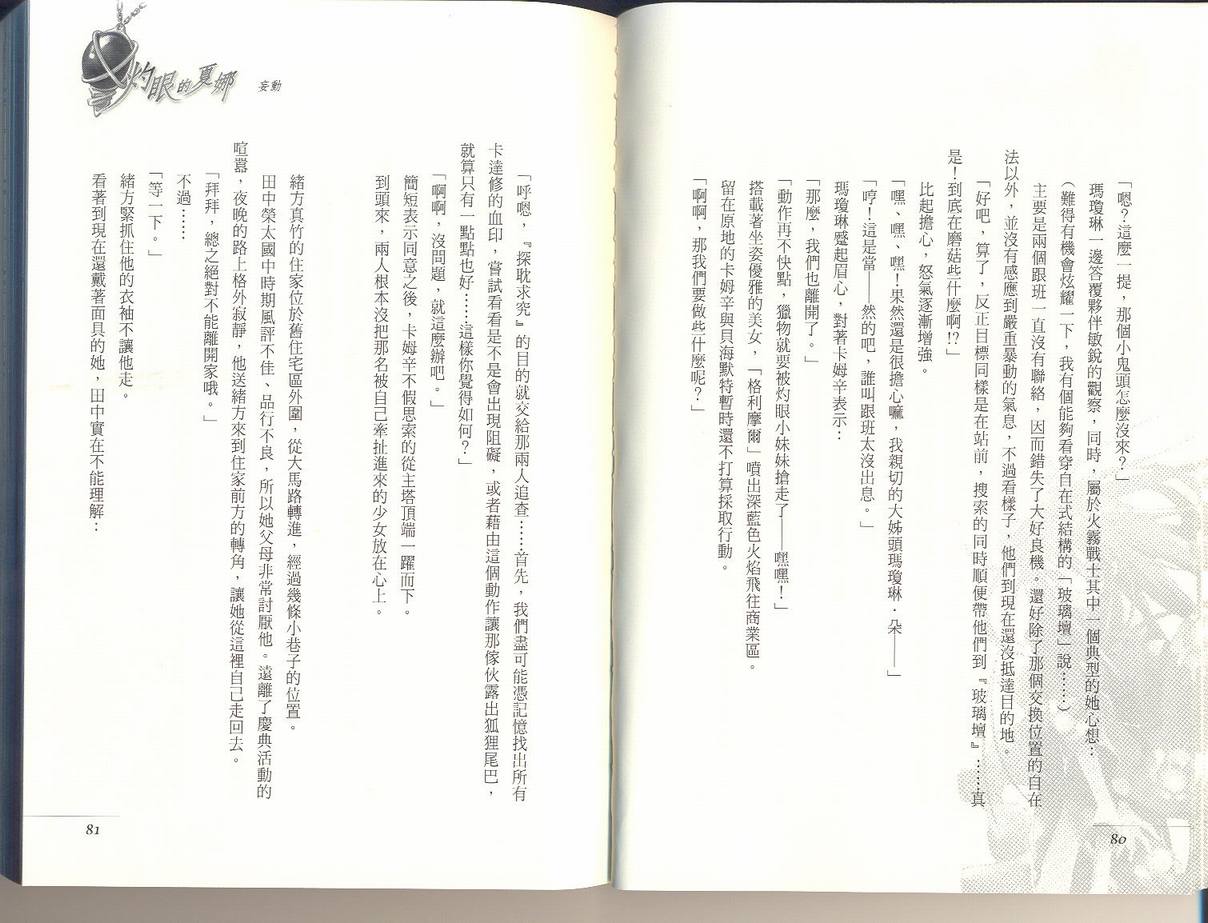 「嗯？這麼一提，那個小鬼頭怎麼沒來？」
瑪瓊琳一邊答覆夥伴敏銳的觀察，同時，屬於火霧戰士其中一個典型的她心想：
（難得有機會炫耀一下，我有個能夠看穿自在式結構的「玻璃壇」說……）
主要是兩個跟班一直沒有聯絡，因而錯失了大好良機。還好除了那個交換位置的自在
法以外，並沒有感應到嚴重暴動的氣息，不過看樣子，他們到現在還沒抵達目的地。
「好吧，算了，反正目標同樣是在站前，搜索的同時順便帶他們到『玻璃壇』……真
是！到底在磨菇些什麼啊!?」
比起擔心，怒氣逐漸增強。
「嘿、嘿、嘿！果然還是很擔心嘛，我親切的大姊頭瑪瓊琳．朵——」
「哼！這是當——然的吧，誰叫跟班太沒出息。」
瑪瓊琳蹙起眉心，對著卡姆辛表示：
「那麼，我們也離開了。」
「動作再不快點，獵物就要被灼眼小妹妹搶走了——嘿嘿！」
搭載著坐姿優雅的美女，「格利摩爾」噴出深藍色火焰飛往商業區。
留在原地的卡姆辛與貝海默特暫時還不打算採取行動。
「啊啊，那我們要做些什麼呢？」
80
灼眼的夏娜
妄動
「呼嗯，『探耽求究』的目的就交給那兩人追查……首先，我們盡可能憑記憶找出所有
卡達修的血印，嘗試看看是不是會出現阻礙，或者藉由這個動作讓那傢伙露出狐狸尾巴，
就算只有一點點也好……這樣你覺得如何？」
「啊啊，沒問題，就這麼辦吧。」
簡短表示同意之後，卡姆辛不假思索的從主塔頂端一躍而下。
到頭來，兩人根本沒把那名被自己牽扯進來的少女放在心上。
緒方真竹的住家位於舊住宅區外圍，從大馬路轉進，經過幾條小巷子的位置。
田中榮太國中時期風評不佳、品行不良，所以她父母非常討厭他。遠離了慶典活動的
喧囂，夜晚的路上格外寂靜，他送緒方來到住家前方的轉角，讓她從這裡自己走回去。
「拜拜，總之絕對不能離開家哦。」
不過……
「等一下。」
緒方緊抓住他的衣袖不讓他走。
看著到現在還戴著面具的她，田中實在不能理解：
81